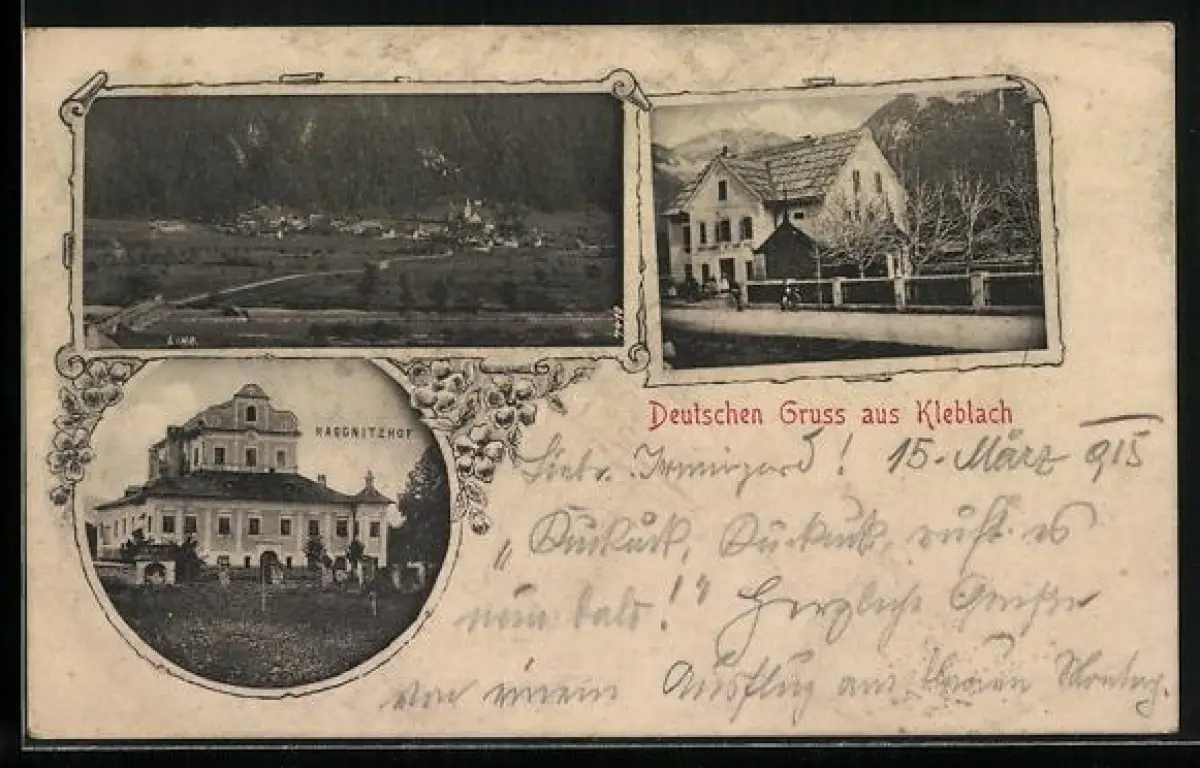 LIND.
RAGGNITZHOF
Deutschen Gruss aus Kleblach
Liebe Irmingard! 15. März 915
„Kuckuck, Kuckuck, ruft es
nun bald!" Herzliche Grüße
von einem Ausflug am blauen Montag.